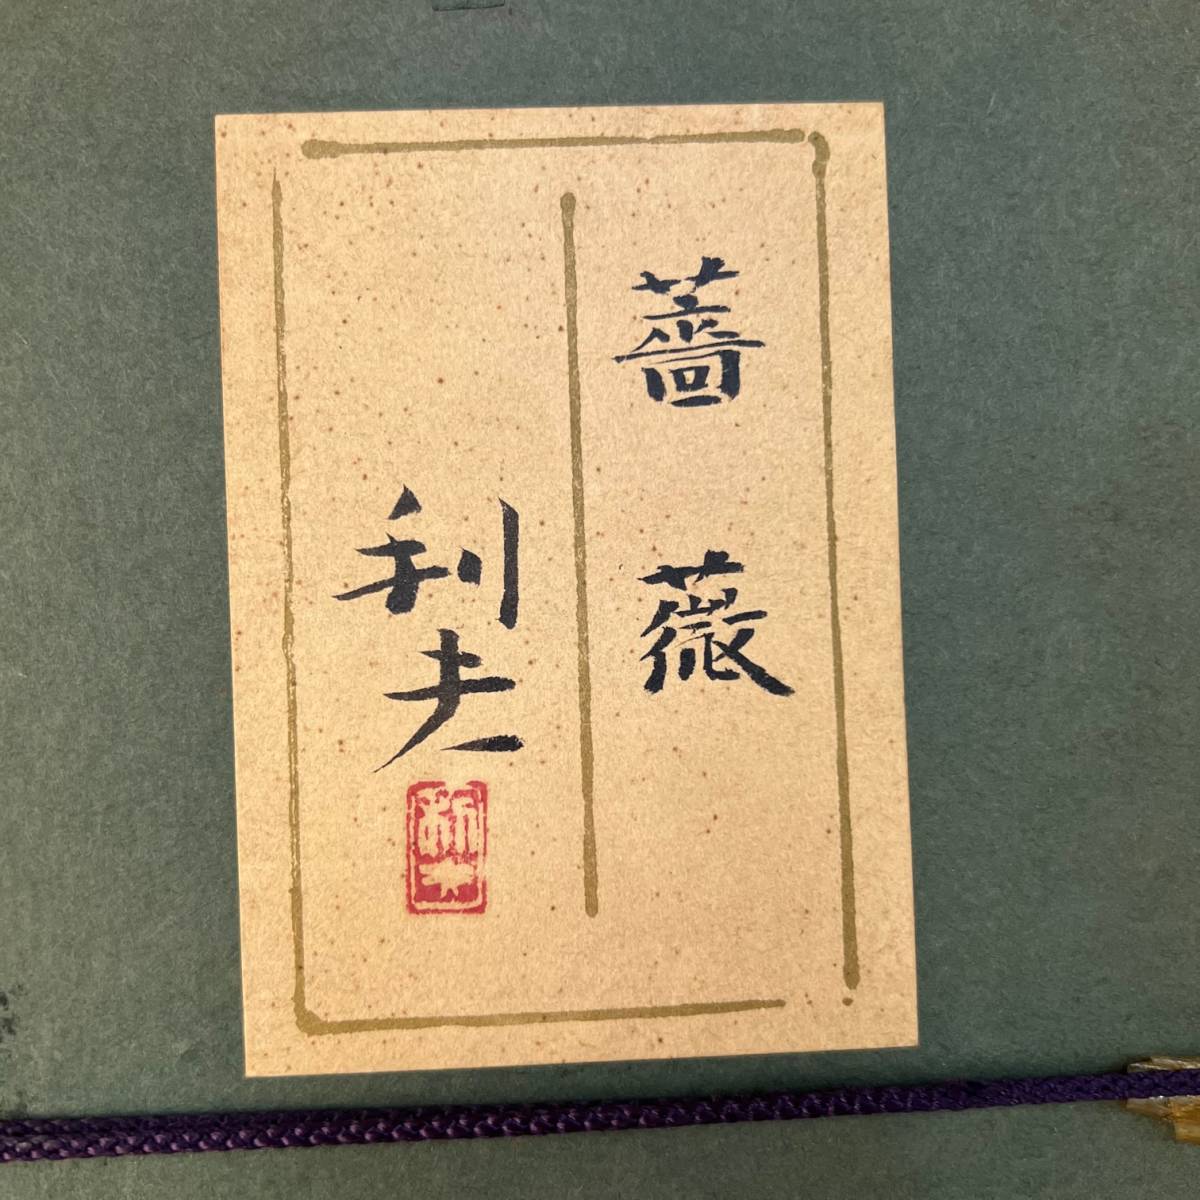 薔薇
利夫